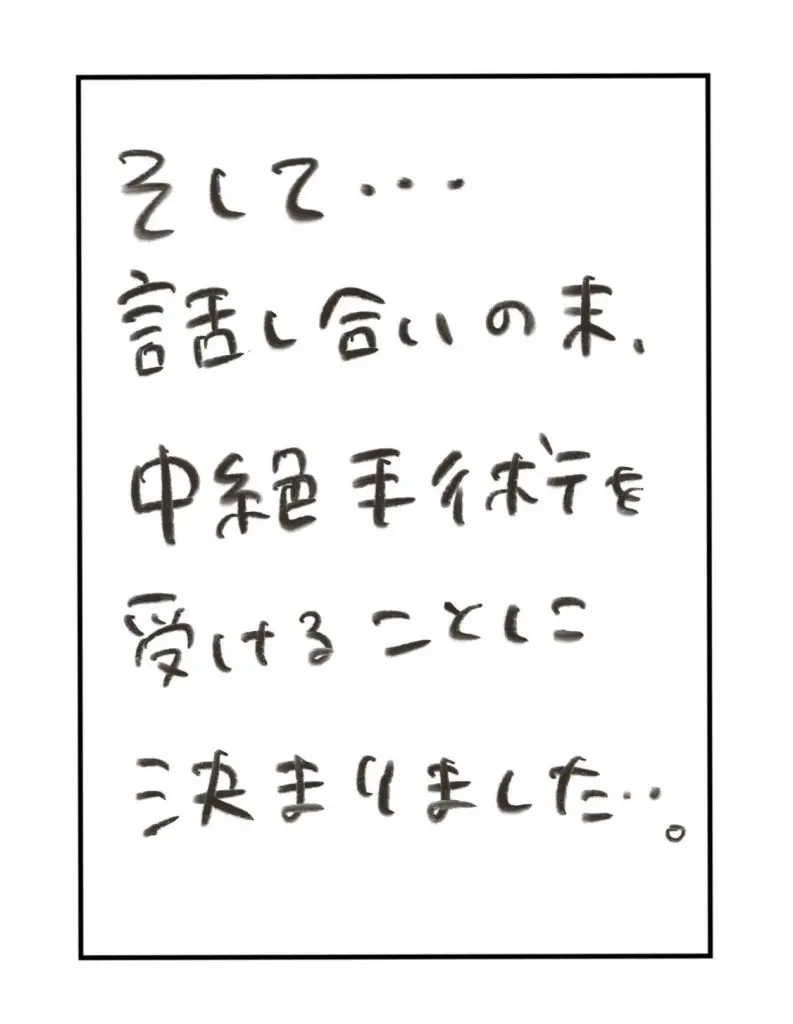 そして・・・
話し合いの末、
中絶手術を
受けることに
決まりました・・。